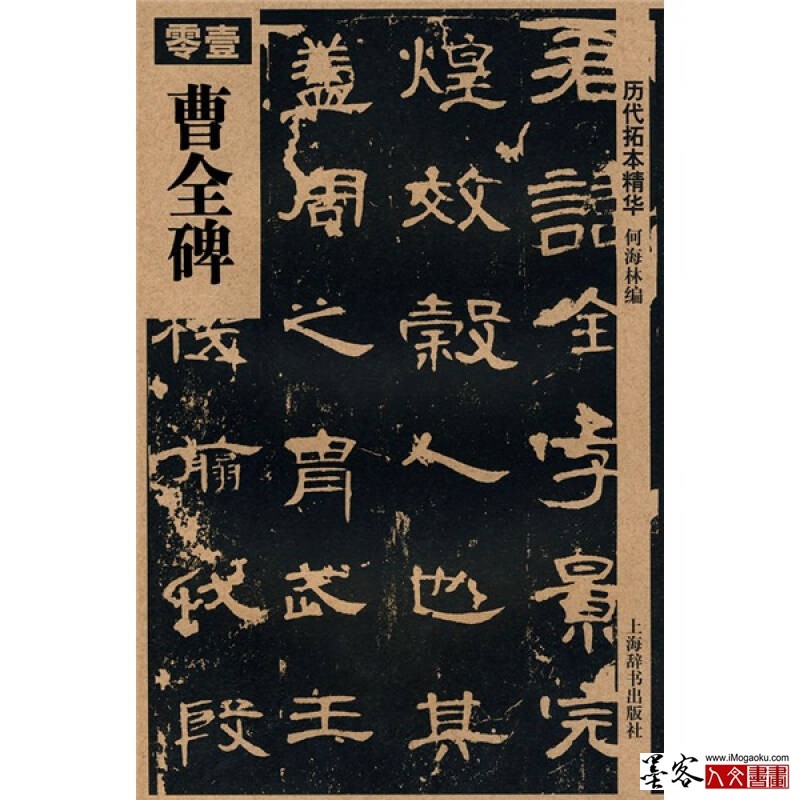 零壹
曹全碑
历代拓本精华 何海林编
上海辞书出版社
君讳全字景完
煌效穀人也其
盖周之胄武王
伐殷
墨客
人文書畫
www.iMogaoku.com